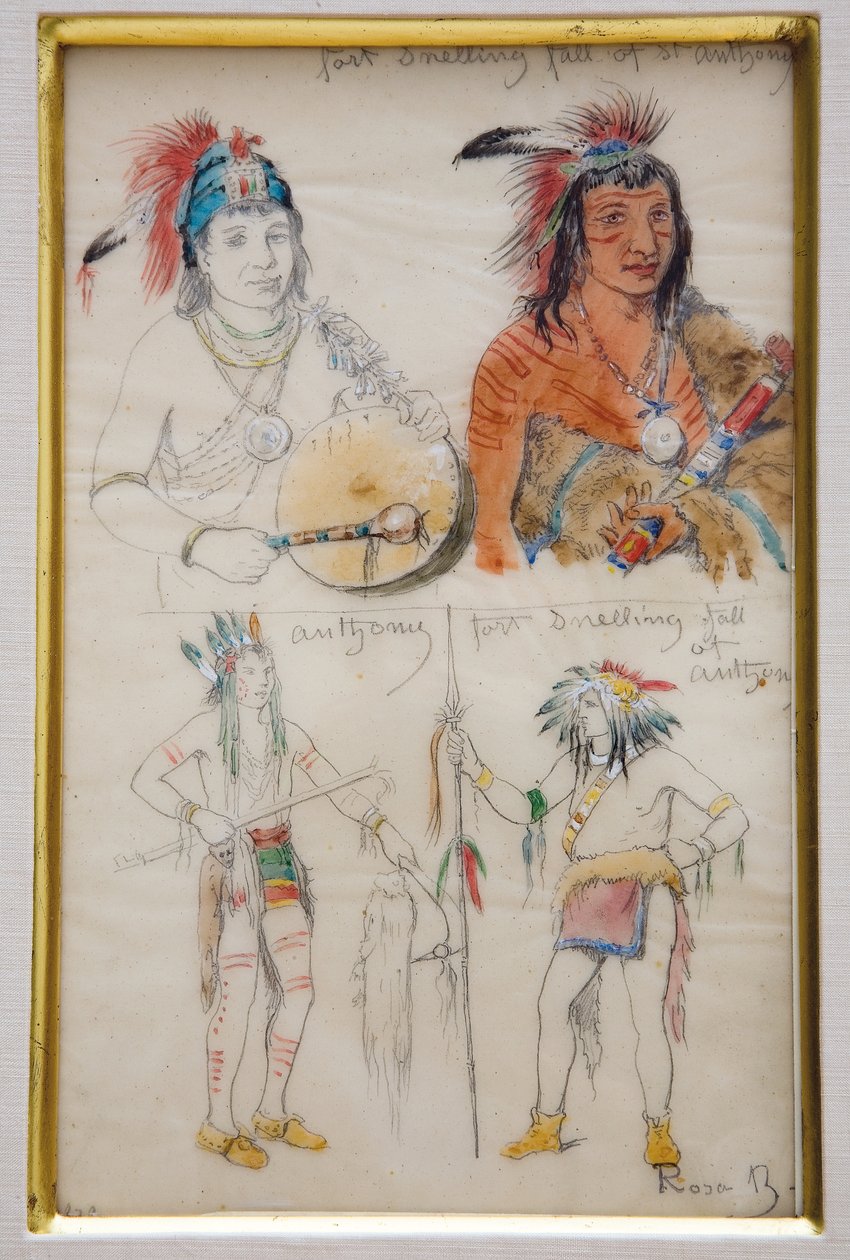 fort Snelling fall of St anthony
anthony
fort Snelling fall
of
anthony
Rosa B.